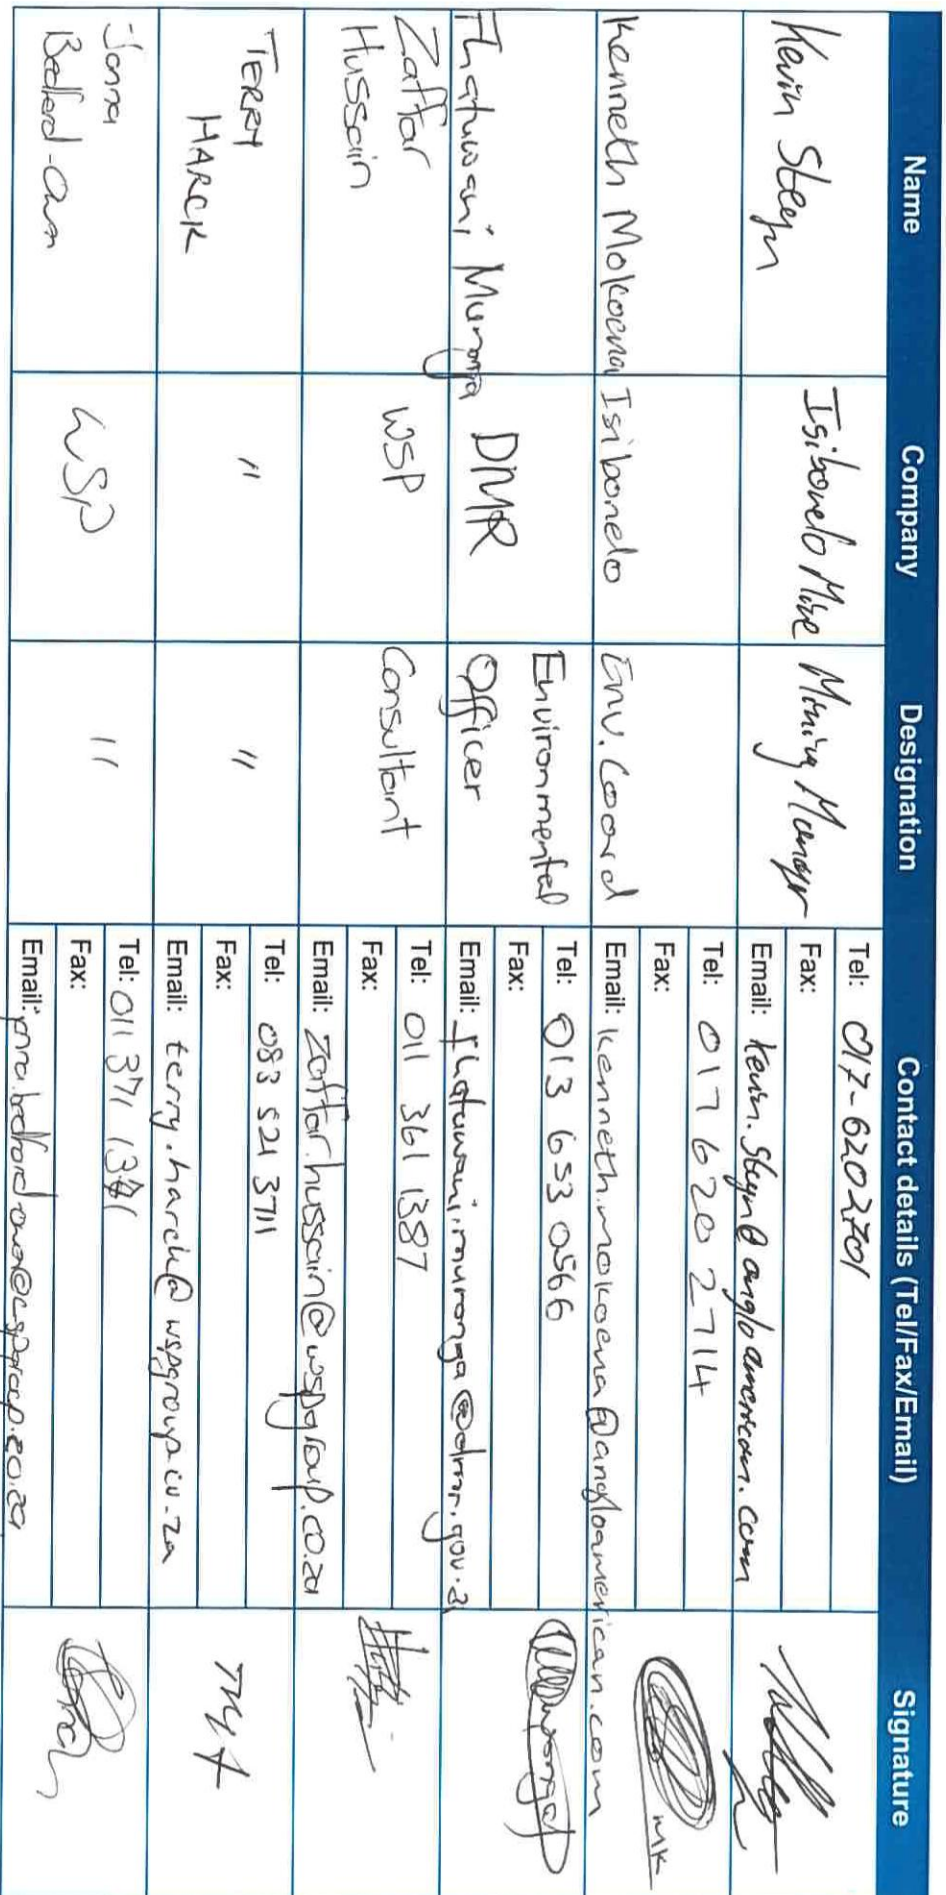 Name Company Designation Contact details (Tel/Fax/Email) Signature
Kevin Steyn Isibonelo Mine Mining Manager Tel: 017-6202701
Fax:
Email: kevin.steyn@angloamerican.com
Kenneth Mokoena Isibonelo Env. Coord Tel: 017 620 2714
Fax: MK
Email: kenneth.mokoena@angloamerican.com
Thatuwani Muronga DMR Environmental
Officer Tel: 013 653 0566
Fax:
Email: thatuwani.muronga@dmr.gov.za
Zaffar
Hussain WSP Consultant Tel: 011 361 1387
Fax:
Email: Zaffar.hussain@wspgroup.co.za
TERRY
HARCK " " Tel: 083 521 3711
Fax:
Email: terry.harck@wspgroup.co.za
Jenna
Bedford-Owen WSP " Tel: 011 371 13
Fax:
Email: